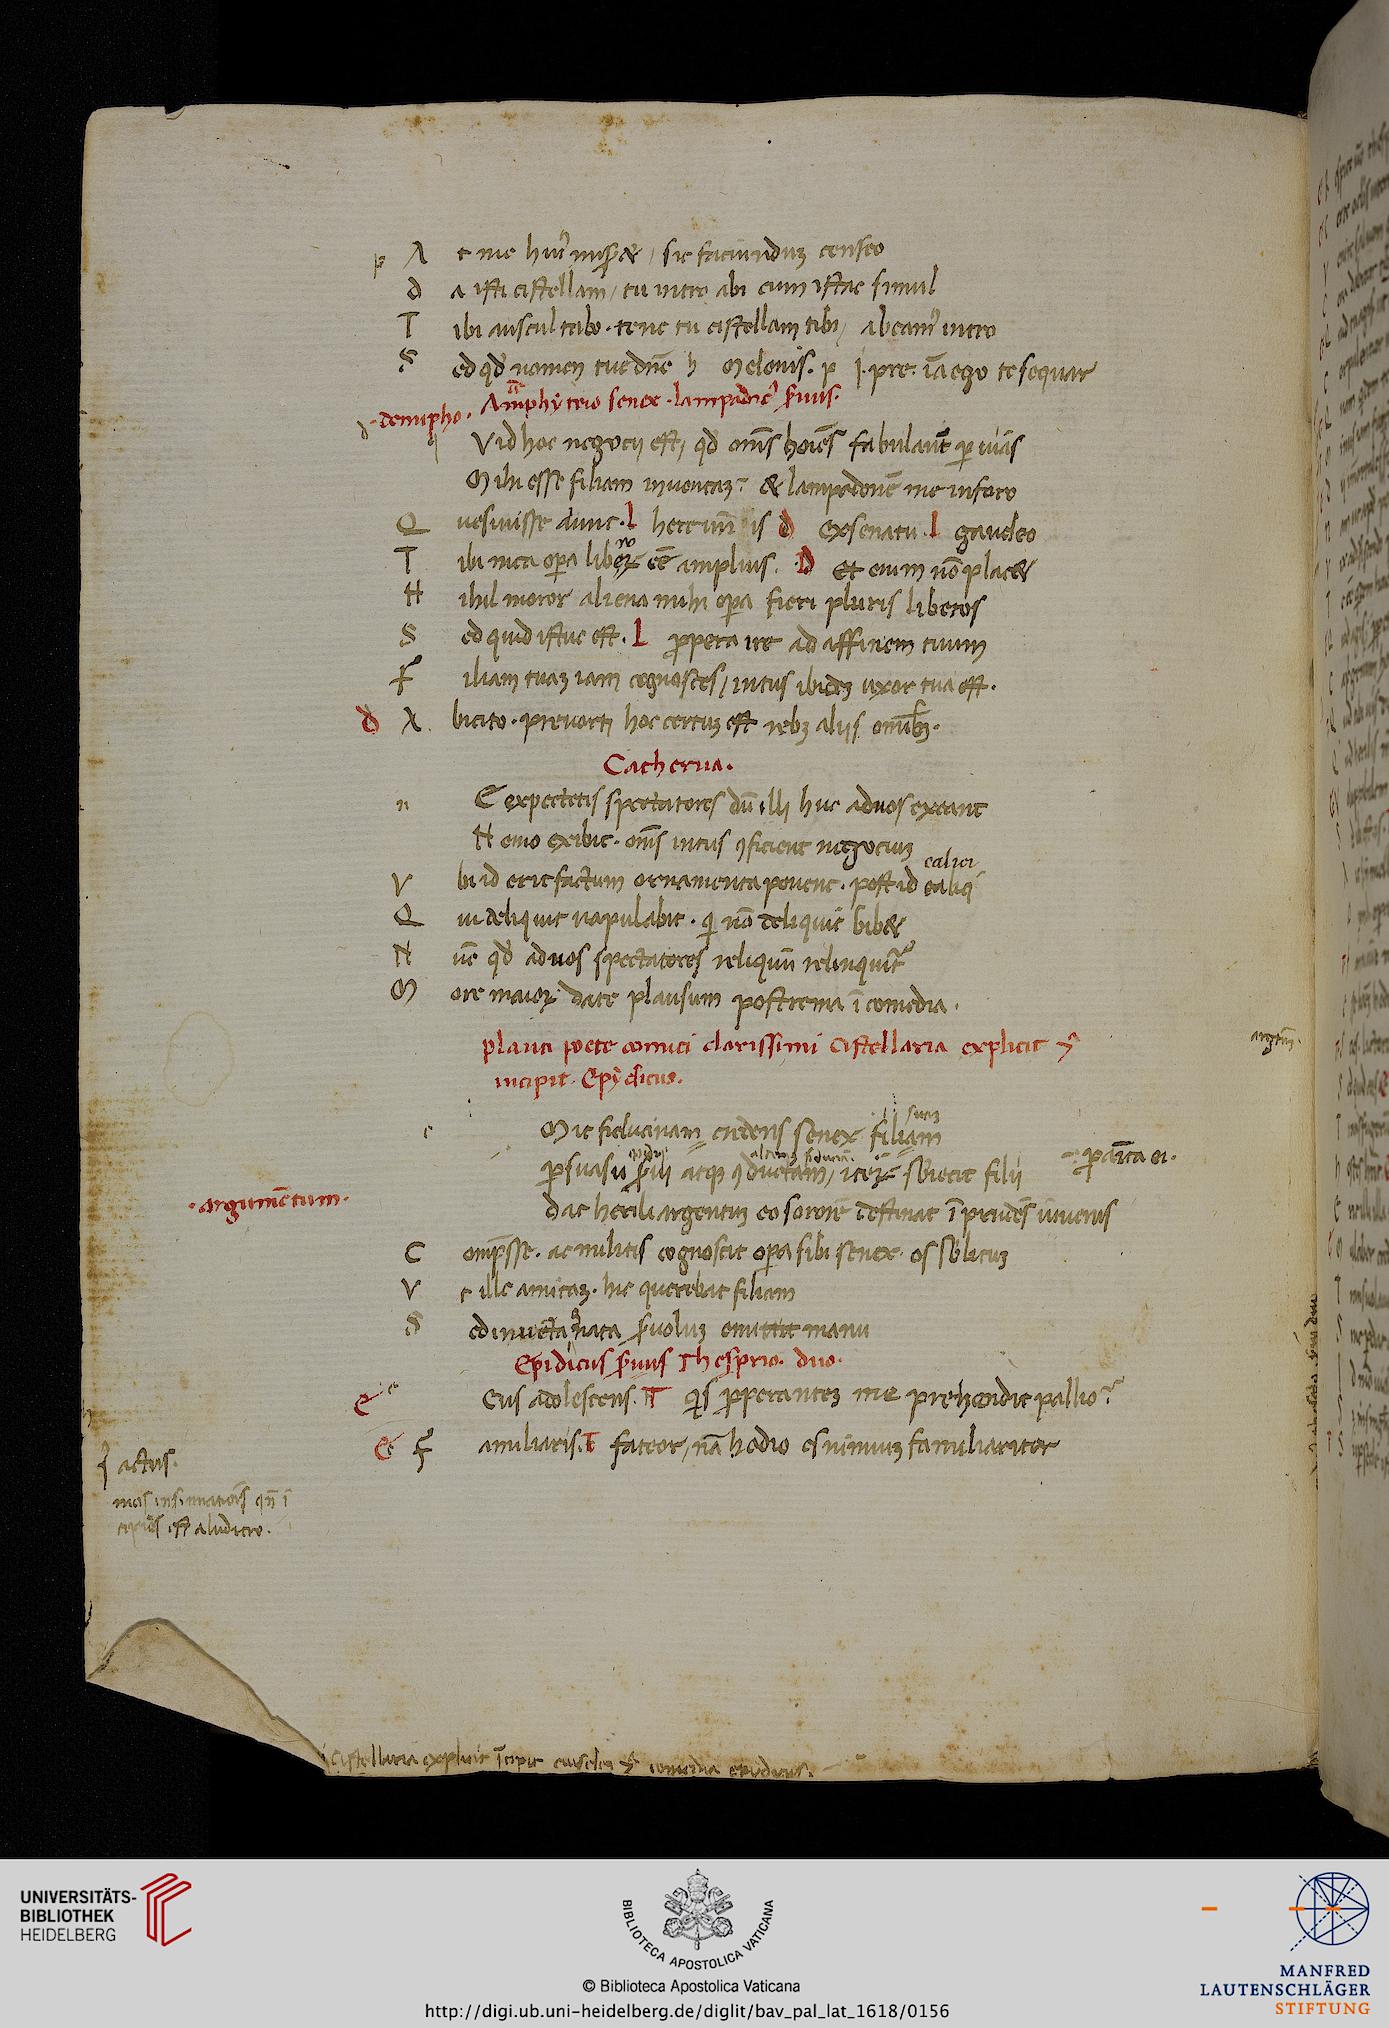 p A t me huiꝰ miseret, sic faciundum censeo
d a isti cistellam, tu intro abi cum istac simul
T ibi auscultabo. tene tu cistellam tibi, abeamꝰ intro
S ed qd̄ nomen tue dnē h Melenis. p I. pre. iā ego te sequar
demipho. Amphytrio senex. lampadicꝰ s̄uus.
Vid hoc negocij est, qd̄ oms̄ hoiēs fabulant̄ ꝑ uiās
Mihi esse filiam inuentaꝫ? & lampadonē me in foro
Q uesiuisse aiunt. l here un̄ is d ex senatu. l gaudeo
T ibi mea oꝑa liberoꝝ eē amplius. D et enim nō placet
N ihil moror aliena mihi oꝑa fieri pluris liberos
S ed quid istuc est. L ꝓpera ire ad affinem tuum
F iliam tuaꝫ iam cognosces, intus ibideꝫ uxor tua est.
d A bicito. preuorti hoc certuꝫ est rebꝫ aliis omībꝫ.
Catherua.
n E expectetis spectatores dū illi huc ad uos exeant
N emo exibit. oms̄ intus ꝯficient negociuꝫ
calici
V bi id erit factum ornamenta ponent. post id caliq
Q ui deliquit uapulabit. qi nō deliquit bibet
N ūc qd̄ ad uos spectatores reliquū relinquit̄
M ore maioꝝ date plausum postrema ī comedia.
plauti poete comici clarissimi Cistellaria explicit &
incipit. Epydicus.
suaꝫ
e Mit fidicinam credens senex filiam
argumētum. ꝑsuasu s̄ui atqꝫ ꝯductam, iteꝝ sbiecit filii
dat herili argentuꝫ eo sororē destinat īprudēs iuuenis
C omp̄sse. ac militis cognoscit oꝑa sibi senex. os sblituꝫ
V t ille amicaꝫ. hic querebat filiam
S ed inuēta nata s̄uoluꝫ emittit manu
Epidicus s̄uus Thesprio. duo.
e Eus adolescens. T qis ꝓperanteꝫ me prehendit pallio?
E F amiliaris. T fateor, nā hodio es nimiuꝫ familiariter
actus.
est a ludicro.
Cistellaria explicit īcipit eiusdeꝫ & comedia epydicus.
UNIVERSITÄTS-
BIBLIOTHEK
HEIDELBERG
BIBLIOTECA APOSTOLICA VATICANA
© Biblioteca Apostolica Vaticana
http://digi.ub.uni-heidelberg.de/diglit/bav_pal_lat_1618/0156
MANFRED
LAUTENSCHLÄGER
STIFTUNG